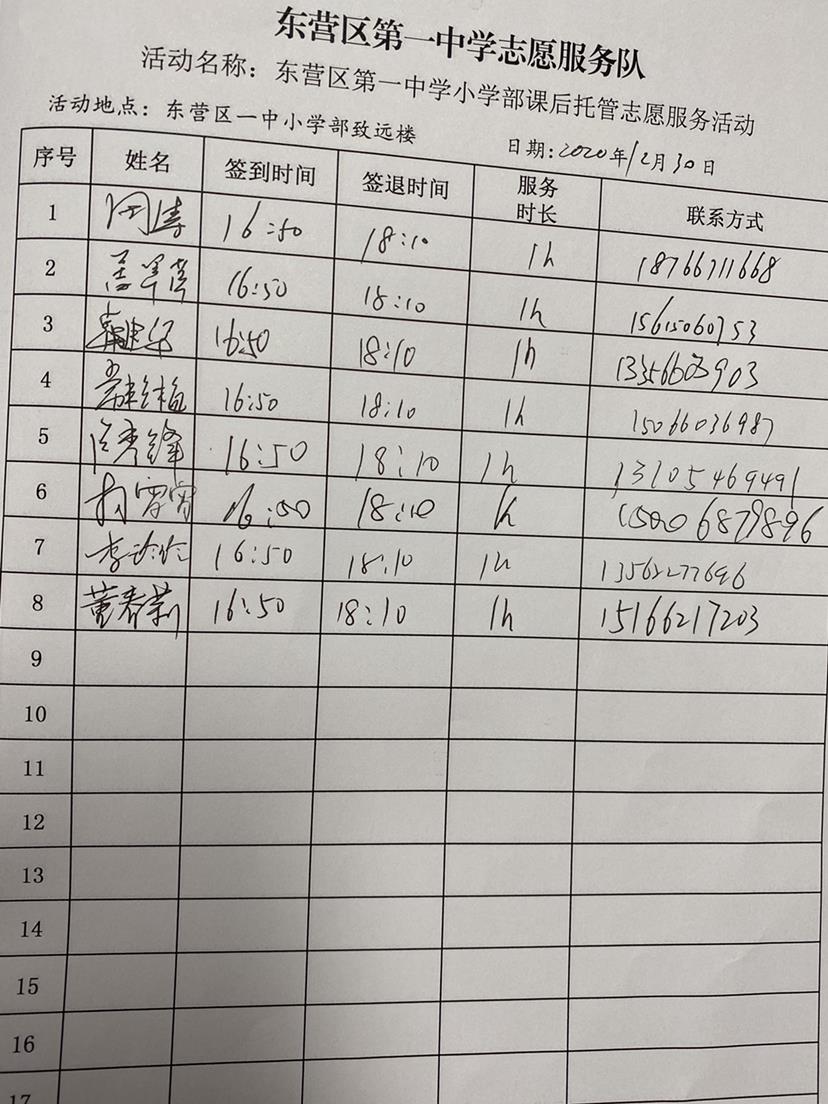 东营区第一中学志愿服务队
活动名称：东营区第一中学小学部课后托管志愿服务活动
活动地点：东营区一中小学部致远楼 日期:2020年12月30日
序号 姓名 签到时间 签退时间 服务时长 联系方式
1 16:50 18:10 1h 18766711668
2 16:50 18:10 1h 15615060753
3 16:50 18:10 1h
4 16:50 18:10 1h 15066036987
5 16:50 18:10 1h 13105469491
6 16:50 18:10 15006879896
7 李 16:50 18:10 1h 13562277696
8 董春莉 16:50 18:10 1h 15166217203
9
10
11
12
13
14
15
16
17